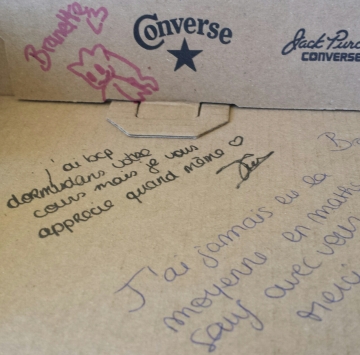 Brunette
Converse
Jack Purc
CONVERSE
j'ai bcp
dormi dans votre
cours mais je vous
apprécie quand même
J'ai jamais eu la
moyenne en math
sauf avec vous
merci